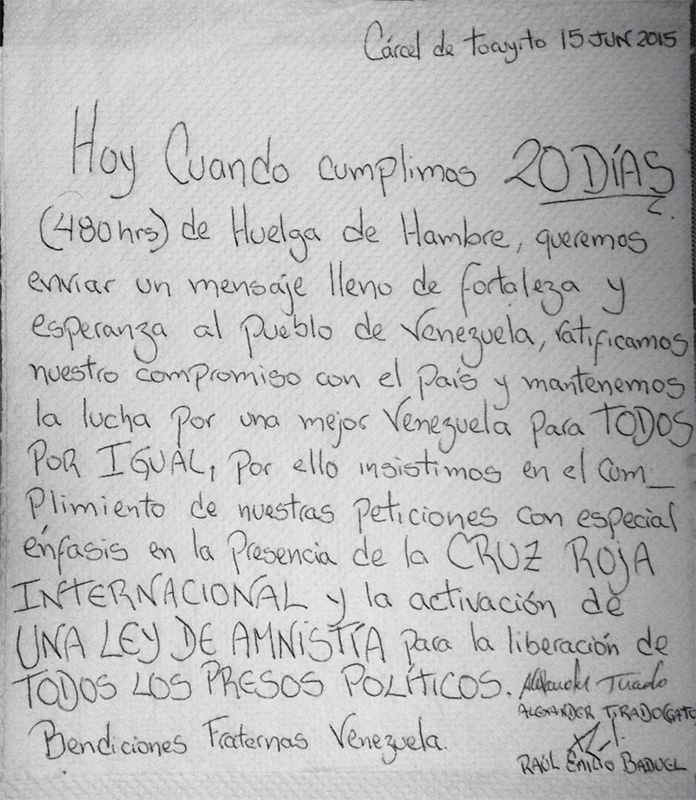 Cárcel de Tocuyito 15 JUN 2015
Hoy Cuando cumplimos 20 DÍAS
(480 hrs) de Huelga de Hambre, queremos
enviar un mensaje lleno de fortaleza y
esperanza al pueblo de Venezuela, ratificamos
nuestro compromiso con el país y mantenemos
la lucha por una mejor Venezuela para TODOS
POR IGUAL, Por ello insistimos en el cum_
plimiento de nuestras peticiones con especial
énfasis en la Presencia de la CRUZ ROJA
INTERNACIONAL y la activación de
UNA LEY DE AMNISTÍA para la liberación de
TODOS LOS PRESOS POLÍTICOS. Alexander Tirado
ALEXANDER TIRADO GATO
Bendiciones Fraternas Venezuela.
RAÚL EMILIO BADUEL